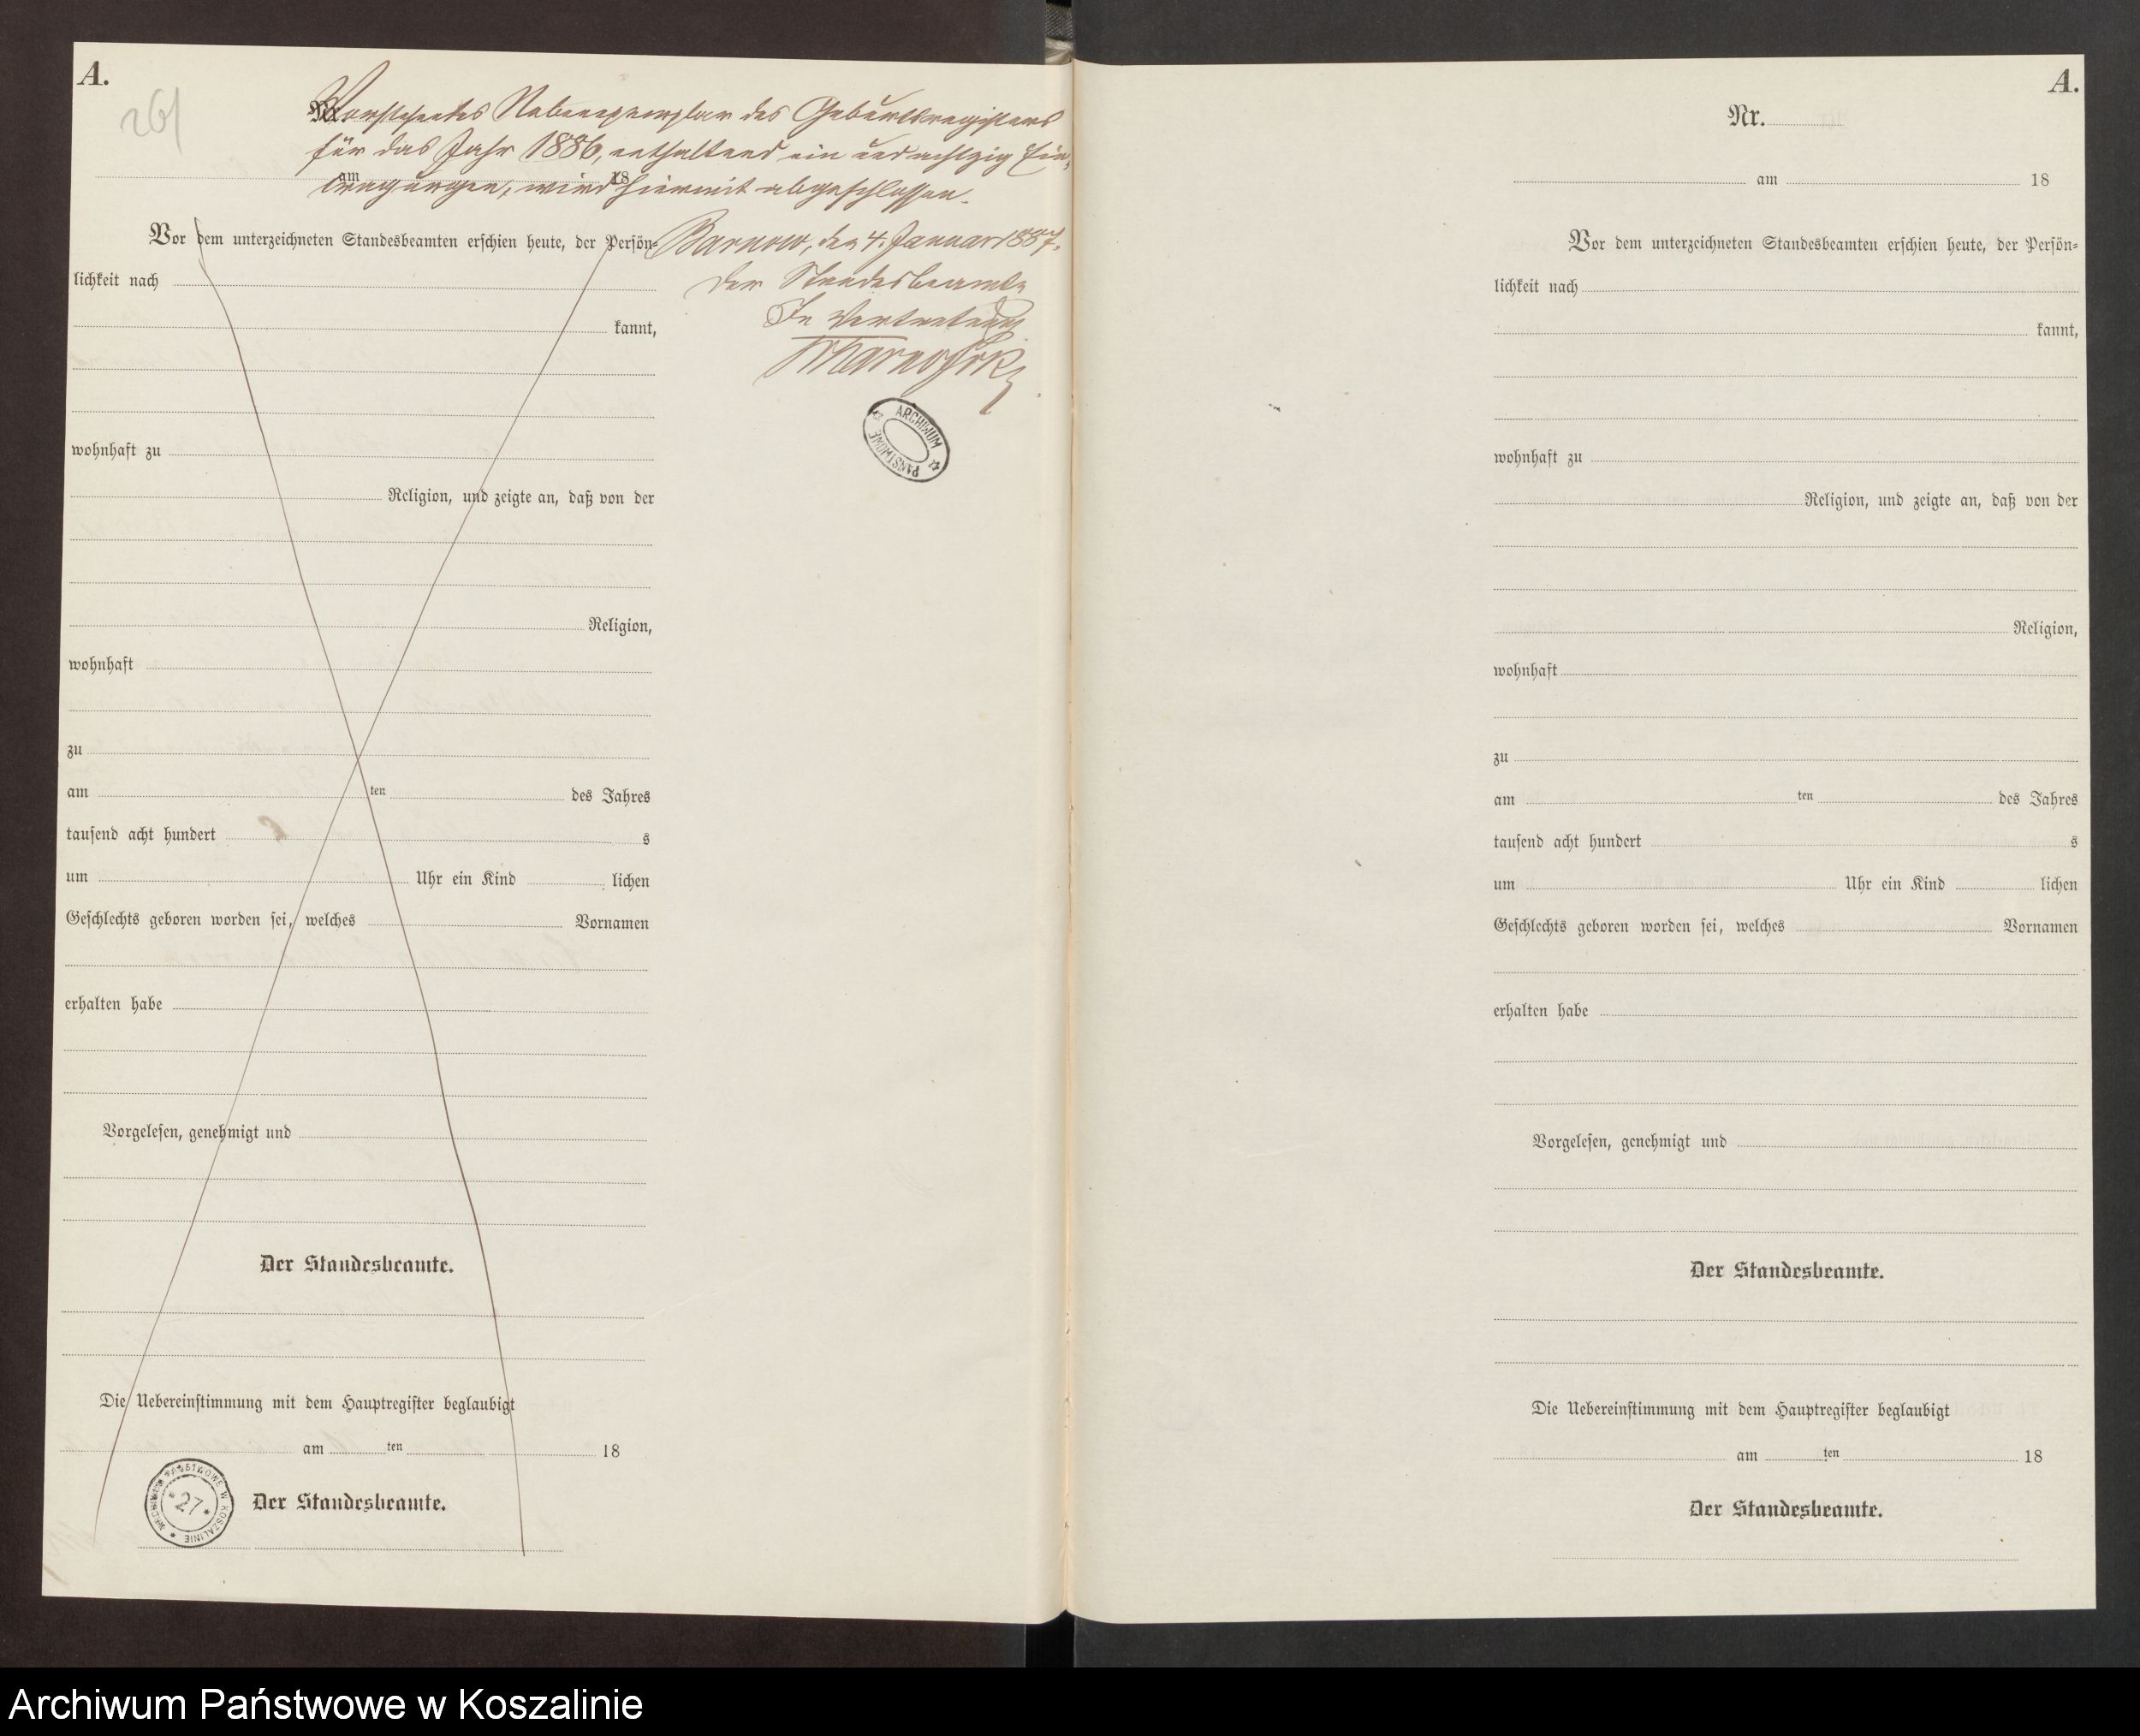 A.
261
Vorstehendes Nebenexemplar des Geburtsregisters
für das Jahr 1886, enthaltend ein und achtzig Ein-
am 18
tragungen, wird hiermit abgeschlossen.
Barnow, den 4. Januar 1887.
Der Standesbeamte
In Vertretung
ARCHIWUM PAŃSTWOWE
Vor dem unterzeichneten Standesbeamten erschien heute, der Persön-
lichkeit nach
kannt,
wohnhaft zu
Religion, und zeigte an, daß von der
Religion,
wohnhaft
zu
am ten des Jahres
tausend acht hundert s
um Uhr ein Kind lichen
Geschlechts geboren worden sei, welches Vornamen
erhalten habe
Vorgelesen, genehmigt und
Der Standesbeamte.
Die Uebereinstimmung mit dem Hauptregister beglaubigt
am ten 18
PAŃSTWOWE W KOSZALINIE
*27*
Der Standesbeamte.
A.
Nr.
am 18
Vor dem unterzeichneten Standesbeamten erschien heute, der Persön-
lichkeit nach
kannt,
wohnhaft zu
Religion, und zeigte an, daß von der
Religion,
wohnhaft
zu
am ten des Jahres
tausend acht hundert s
um Uhr ein Kind lichen
Geschlechts geboren worden sei, welches Vornamen
erhalten habe
Vorgelesen, genehmigt und
Der Standesbeamte.
Die Uebereinstimmung mit dem Hauptregister beglaubigt
am ten 18
Der Standesbeamte.
Archiwum Państwowe w Koszalinie